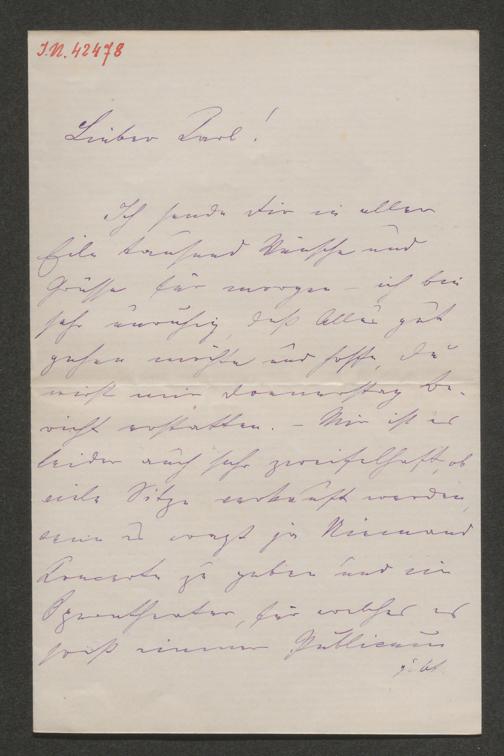 I.N. 42478
Lieber Carl!
Ich sende Dir in aller
Eile tausend Wünsche und
Grüsse für morgen – ich bin
sehr unruhig, daß Alles gut
gehen möchte und hoffe, Du
wirst mir Donnerstag be-
richt erstatten. – Mir ist es
leider auch sehr zweifelhaft, ob
viele Sitze verkauft werden,
denn es wagt ja Niemand
Concerte zu geben und ein
Operntheater, für welches es
sonst immer Publicum